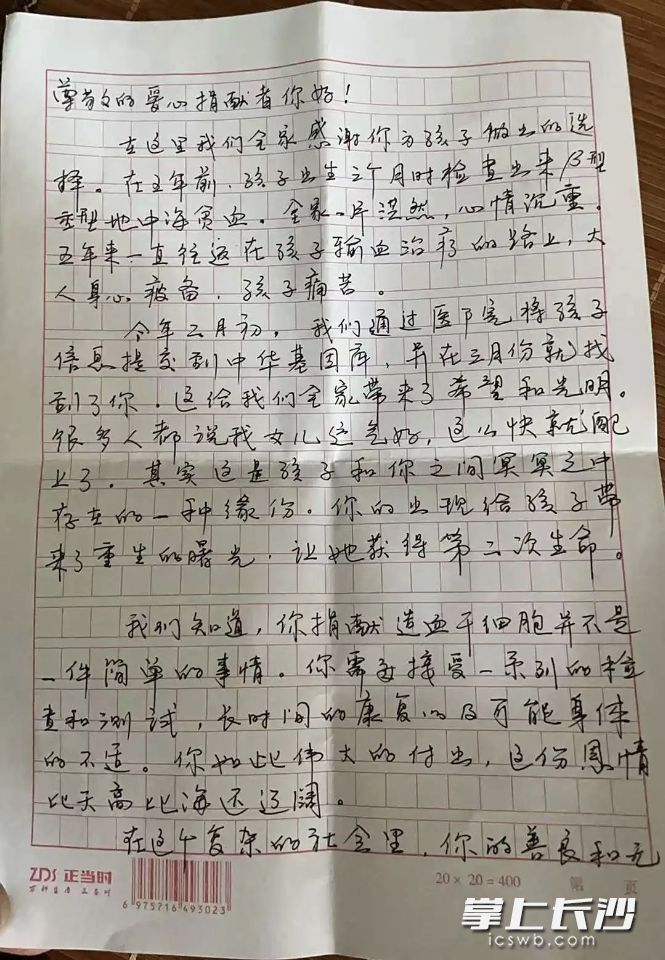 尊敬的爱心捐献者你好！
在这里我们全家感谢你为孩子做出的选
择。在五年前，孩子出生三个月时检查出来β型
重型地中海贫血。全家一片茫然，心情沉重。
五年来一直往返在孩子输血治疗的路上，大
人身心疲备，孩子痛苦。
今年二月初，我们通过医院将孩子
信息提交到中华基因库，并在三月份就找
到了你，这给我们全家带来了希望和光明。
很多人都说我女儿运气好，这么快就配
上了。其实这是孩子和你之间冥冥之中
存在的一种缘份。你的出现给孩子带
来了重生的曙光，让她获得第二次生命。
我们知道，你捐献造血干细胞并不是
一件简单的事情。你需要接受一系列的检
查和测试，长时间的康复以及可能身体
的不适。你如此伟大的付出，这份恩情
比天高比海还辽阔。
在这个复杂的社会里，你的善良和无
ZDS 正当时
6 975716 493023
20 × 20 = 400 第 页
掌上长沙
icswb.com